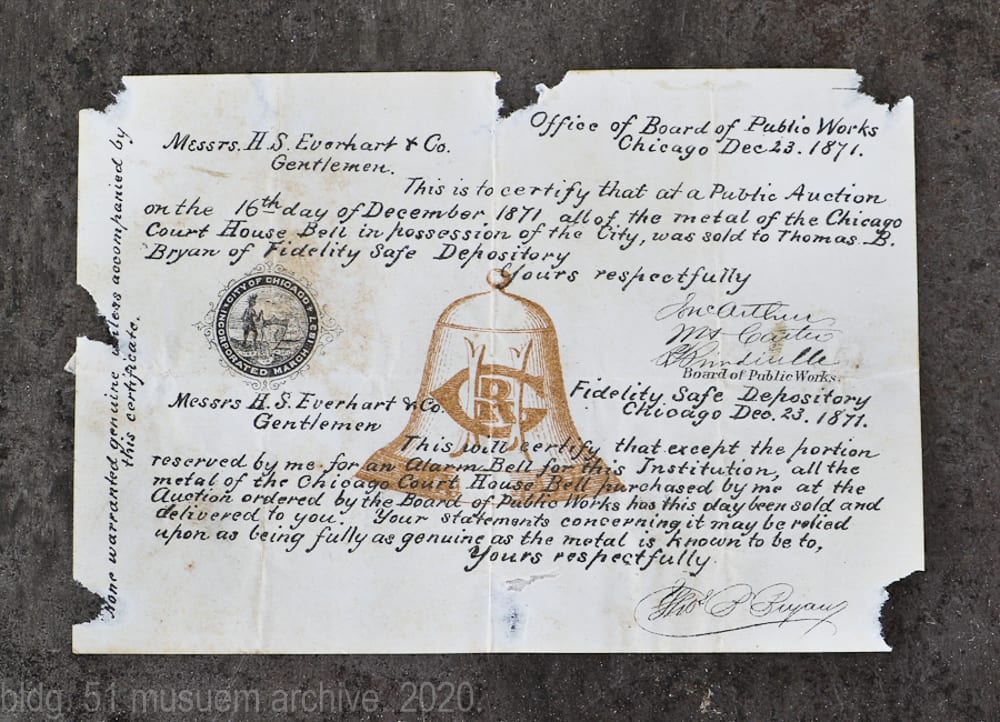 Office of Board of Public Works
Chicago Dec 23. 1871.
Messrs. H. S. Everhart & Co.
Gentlemen.
This is to certify that at a Public Auction
on the 16th day of December 1871 all of the metal of the Chicago
Court House Bell in possession of the City, was sold to Thomas. B.
Bryan of Fidelity Safe Depository
Yours respectfully
Board of Public Works.
CITY OF CHICAGO
INCORPORATED MARCH 4 1837
Fidelity Safe Depository
Chicago Dec. 23. 1871.
Messrs H. S. Everhart & Co.
Gentlemen
This will certify that except the portion
reserved by me for an Alarm Bell for this Institution, all the
metal of the Chicago Court House Bell purchased by me at the
Auction ordered by the Board of Public Works has this day been sold and
delivered to you. Your statements concerning it may be relied
upon as being fully as genuine as the metal is known to be to,
Yours respectfully
Thos B Bryan
None warranted genuine unless accompanied by
this certificate.
bldg. 51 musuem archive. 2020.